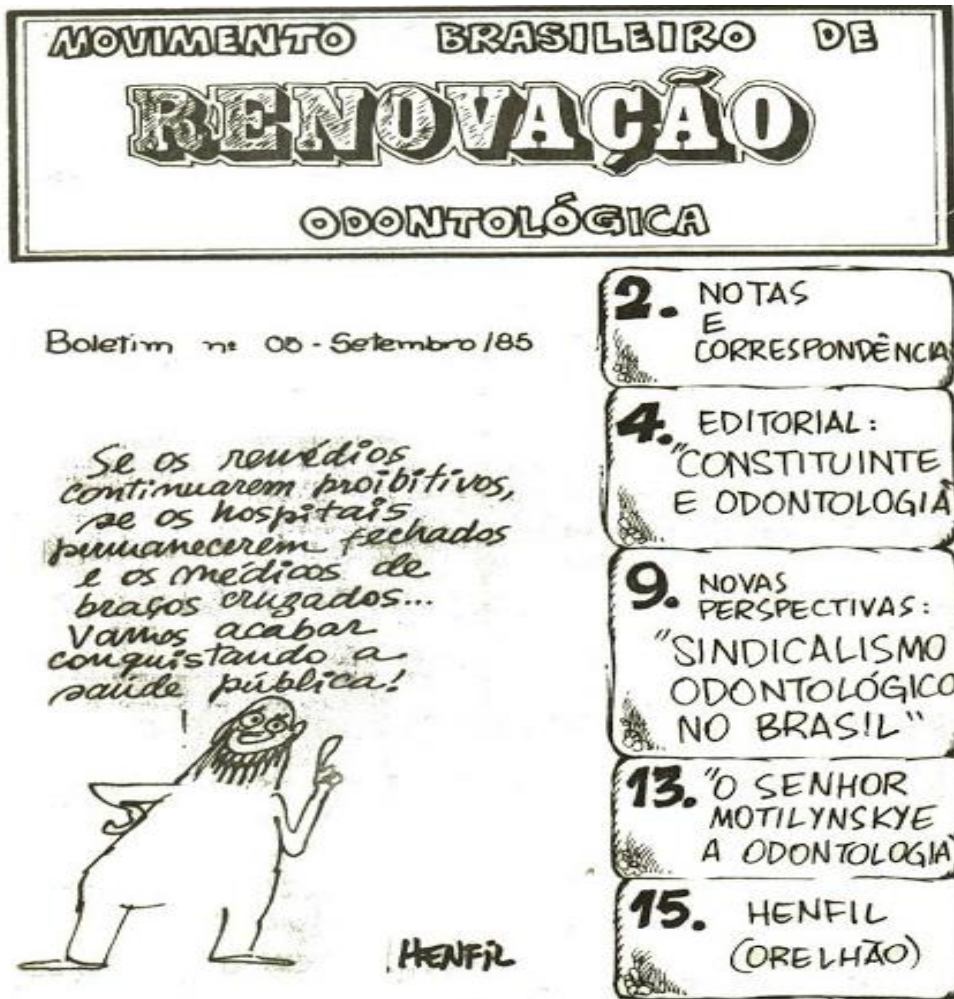 MOVIMENTO BRASILEIRO DE
RENOVAÇÃO
ODONTOLÓGICA
Boletim nº 05 - Setembro/85
Se os remédios
continuarem proibitivos,
se os hospitais
permanecerem fechados
e os médicos de
braços cruzados...
Vamos acabar
conquistando a
saúde pública!
HENFIL
2. NOTAS
E
CORRESPONDÊNCIA
4. EDITORIAL:
"CONSTITUINTE
E ODONTOLOGIA"
9. NOVAS
PERSPECTIVAS:
"SINDICALISMO
ODONTOLÓGICO
NO BRASIL"
13. "O SENHOR
MOTILYNSKYE
A ODONTOLOGIA
15. HENFIL
(ORELHÃO)